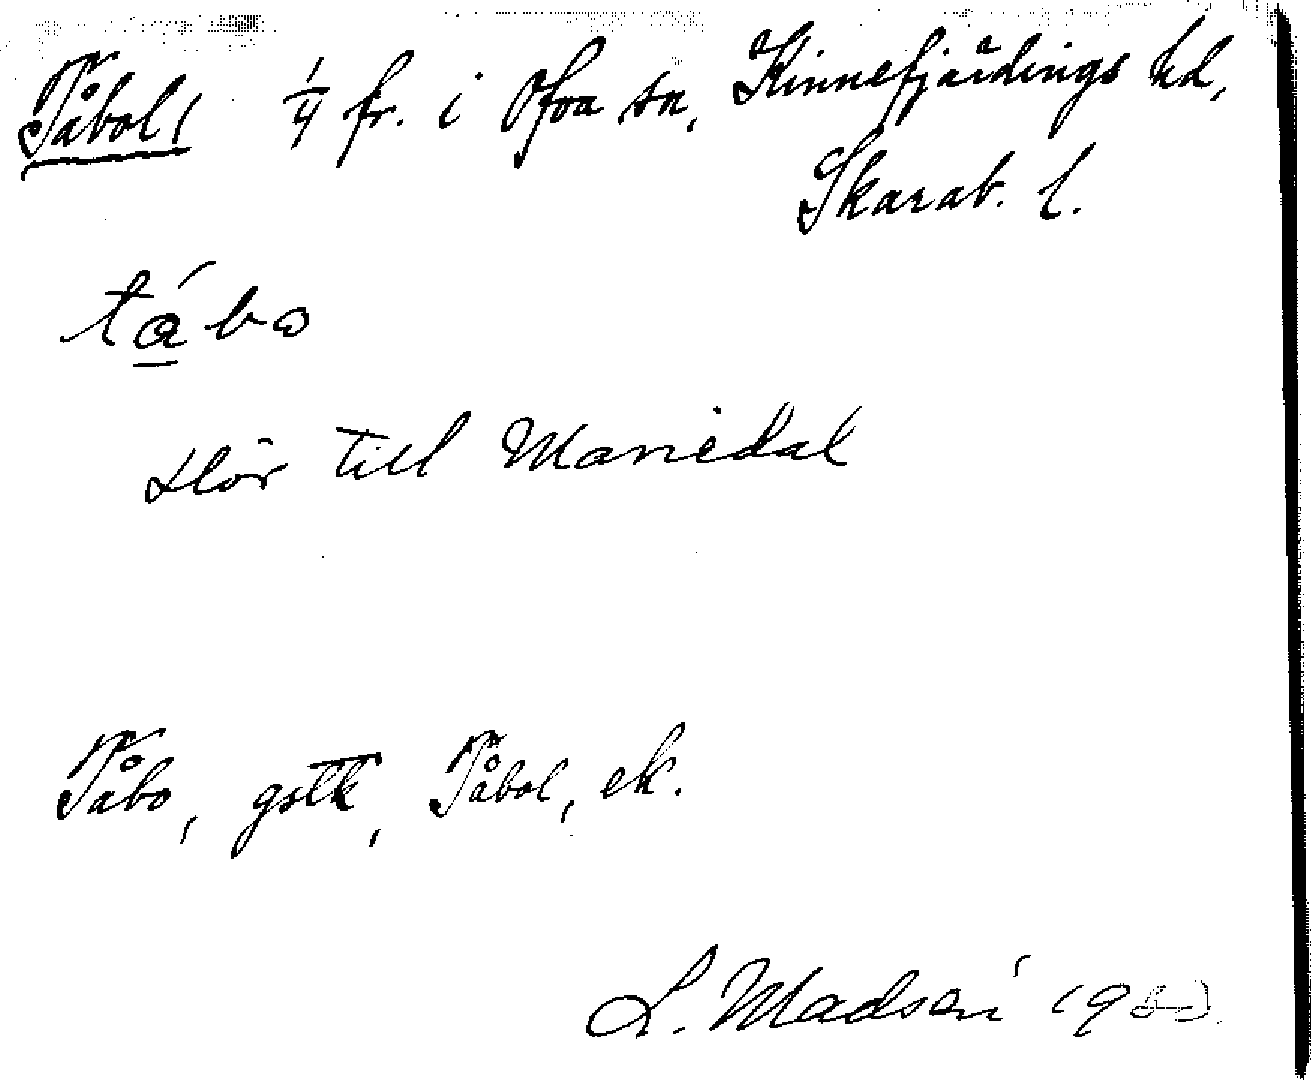 Tåbol, 1/4 fr. i Ova sn, Kinnefjärdings hd,
Skarab. l.
tábo
Hör till Mariedal
Tåbo, gstk, Tåbol, ek.
L. Madsén